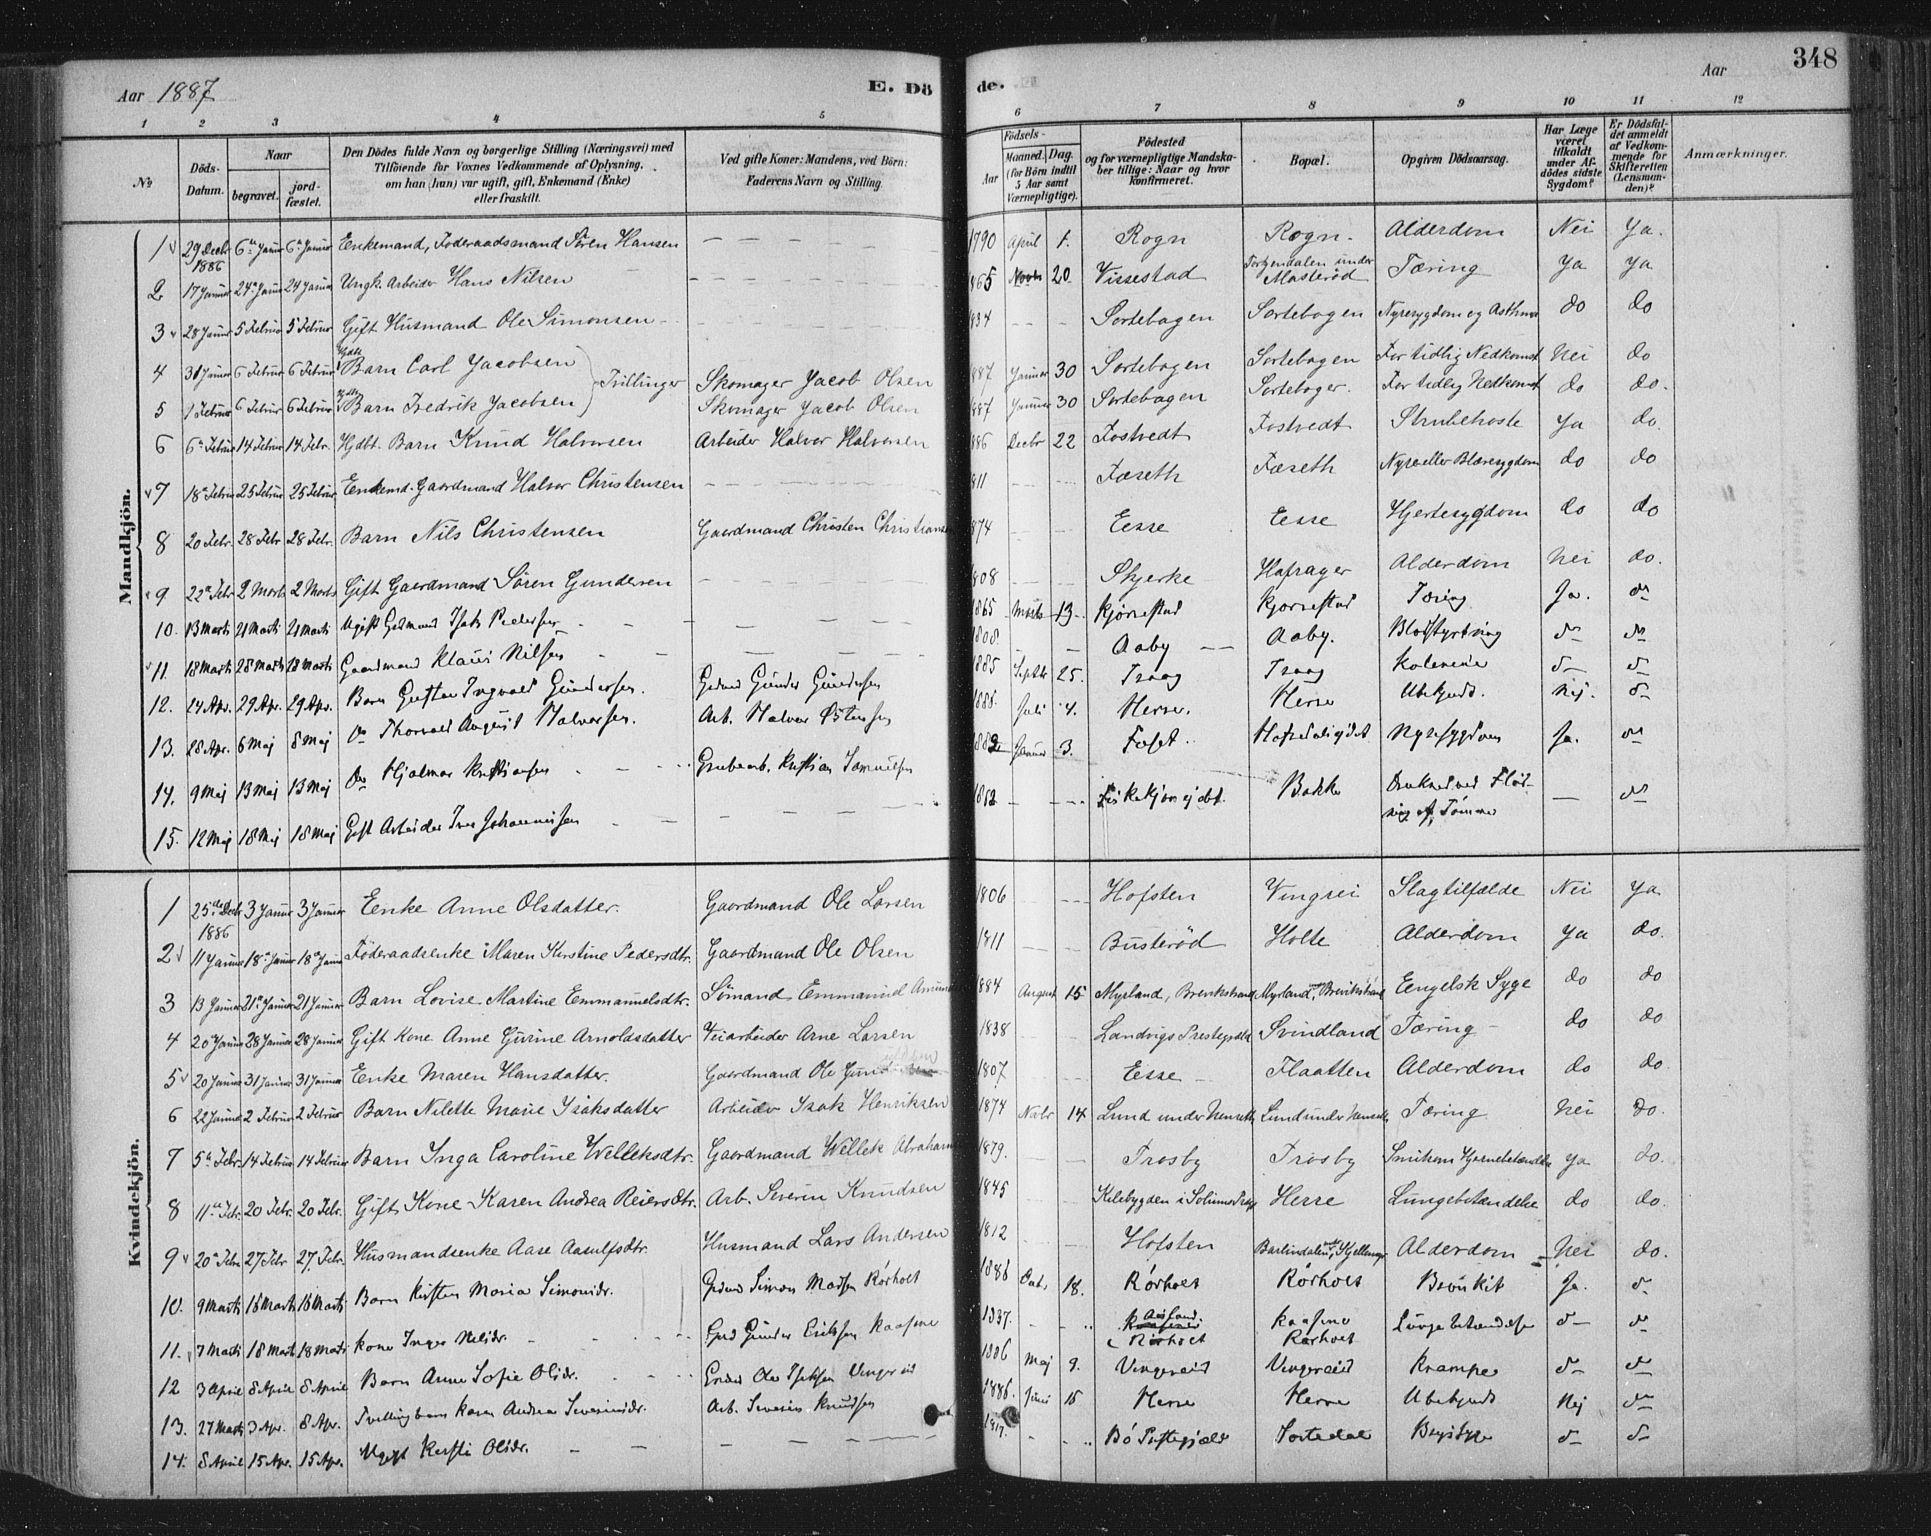 Aar 1887 E. Dö de. Aar 348
1 2 3 4 5 6 7 8 9 10 11 12
No Döds-Datum. Naar begravet. jordfæstet. Den Dödes fulde Navn og borgerlige Stilling (Næringsvei) med Tilföiende for Voxnes Vedkommende af Oplysning, om han (hun) var ugift, gift, Enkemand (Enke) eller fraskilt. Ved gifte Koner: Mandens, ved Börn: Faderens Navn og Stilling. Födsels- Aar Maaned. Dag. (for Börn indtil 5 Aar samt Værnepligtige). Födested og for værnepligtige Mandskaber tillige: Naar og hvor konfirmeret. Bopæl. Opgiven Dödsaarsag. Har Læge været tilkaldt under Afdødes sidste Sygdom? Er Dödsfaldet anmeldt af Vedkommende for Skifteretten (Lensmanden)? Anmærkninger.
Mandkjön.
1 29 Decbr 1886 6te Januar 6te Januar Enkemand, Föderaadsmand Sören Hansen 1790 April 1. Rogn Rogn. Alderdom Nei Ya.
2 17 Januar 24 Januar 24 Januar Ungk. Arbeider Hans Nilsen 1865 Novbr 20 Vissestad under Masteröd Tæring Ya Ya
3 28 Januar 5 Februar 5 Februar Gift Husmand Ole Simonsen 1834 Sortebogen Sortebogen Nyresygdom og Asthma do do
4 31 Januar 6 Februar 6 Februar Ægte Barn Carl Jacobsen Trillinger Skomager Jacob Olsen 1887 Januar 30 Sortebogen Sortebogen For tidlig Nedkomst Nei do
5 1 Februar 6 Februar 6 Februar Barn Fredrik Jacobsen Skomager Jacob Olsen 1887 Januar 30 Sortebogen Sortebogen. For tidlig Nedkomst do do.
6 6 Februar 14 Februar 14 Febr. Hjdbt. Barn Knud Halvorsen Arbeider Halvor Halvorsen 1886 Decbr 22 Fostvedt Fostvedt Strubehoste Ya do.
7 18 Februar 25 Februar 25 Februar Enkemd. Gaardmand Halvor Christensen 1811 Fæseth Fæseth Nyre eller Blæresygdom do do
8 20 Febr. 28 Febr 28 Febr. Barn Nils Christensen Gaardmand Christen Christiansen 1874 Eesse Eesse Hjertesygdom do do
9 22 Febr 2 Marts 2 Marts Gift Gaardmand Sören Gundersen 1808 Skjerke Hafsager Alderdom Nei do.
10. 13 Marts 21 Marts 21 Marts Ugift Gdmand Isak Pedersen 1865 Marts 13. Kjörrestad Kjörrestad Tæring Ja. do
11. 18 Marts 28 Marts 28 Marts Gaardmand Klaus Nilsen 1808. Aaby Aaby. Blodstyrtning do do
12. 24 Apr. 29 Apr. 29 Apr. Barn Gustav Ingvald Gundersen. Gdmd Gunder Gundersen 1885 Septbr 25. Traag Traag Kolerine do do
13. 28 Apr. 6 Maj 8 Maj do Thorvald August Halvorsen. Arb. Halvor Östensen 1886. Juli 4. Herre. Herre Ubekjendt. Nej. do
14. 9 Maj 13 Maj 13 Maj do Hjalmar Kristiansen Grubearb. Kristian Samuelsen 1882 Januar 3. Foset. Nyresygdom Ja. do
15. 12 Maj 18 Maj 18 Maj Gift Arbeider Iver Johannessen 1852 Bakke Druknet ved Flödning af Tömmer — do
Kvindekjön.
1 25de Decbr 1886 3 Januar 3 Januar Eenke Anne Olsdatter. Gaardmand Ole Larsen 1806 Hofsten Vingrei Slagtilfælde Nei Ya
2 11 Januar 18 Januar 18 Januar Föderaadsenke Maren Kirstine Pedersdtr. Gaardmand Ole Olsen 1811 Busteröd Holte Alderdom Ya do.
3 13 Januar 21 Januar 21 Januar Barn Lovise Martine Emmanuelsdtr. Sömand Emmanuel 1884 August 15 Myrland, Brevikstrand Myrland, Brevikstrand Eengelsk Syge do do
4 20 Januar 28 Januar 28 Januar Gift Kone Anne Gurine Arnoldsdatter Veiarbeider Arne Larsen 1838 Landvigs Prestegjeld Svindland Tæring do do
5 20 Januar 31 Januar 31 Januar Eenke Maren Hansdatter. Gaardmand Ole 1807 Eesse Flaatten Alderdom do do.
6 22 Januar 2 Februar 2 Februar Barn Nilette Marie Isaksdatter Arbeider Isak Henriksen 1874 Novbr 14 Lund under Lund under Tæring Nei do.
7 5te Febr. 14 Februar 14 Februar Barn Inga Caroline Willeksdtr. Gaardmand Willek Abrahamsen 1879. Trosby Trosby Smitsom Hjernebetændelse Ya do.
8 11te Febr. 20 Febr. 20 Febr. Gift Kone Karen Andrea Reiersdtr. Arb. Severin Knudsen 1845 Kilebygden i Solums Præst Herre Lungebetændelse do do.
9 20 Febr 27 Febr 27. Febr. Husmandsenke Aase Aasulfsdtr. Husmand Lars Andersen 1812 Hofsten Barlindalen Alderdom Nei do.
10. 9 Marts 16 Marts 16 Marts Barn Kirsten Maria Simonsdr. Gdmd Simon Madsen Rörholt 1886 Oct. 18. Rörholt Rörholt Bronkit Ja. do
11. 7 Marts 18 Marts 18 Marts Kone Inger Nilsdr. Gmd Gunder Eriksen Kaasene 1837. Rörholt Kaasene Rörholt Lungebetændelse do do
12 3 April 8 April 8 April Barn Anne Sofie Olsdr. Gmd Ole Isaksen Vingereid 1886 Maj 9. Vingereid Vingereid Krampe do do
13. 27 Marts 3 Apr. 8 Apr. Tvillingbarn Karen Andrea Severinsdr. Arb. Severin Knudsen 1886. Juni 15 Herre Herre Ubekjendt Nej do
14. 8 April 15 Apr. 15 Apr. Ugift Kersti Olsdr. 1817. Bö Prestegjæld Sortedal Brystsyge do do